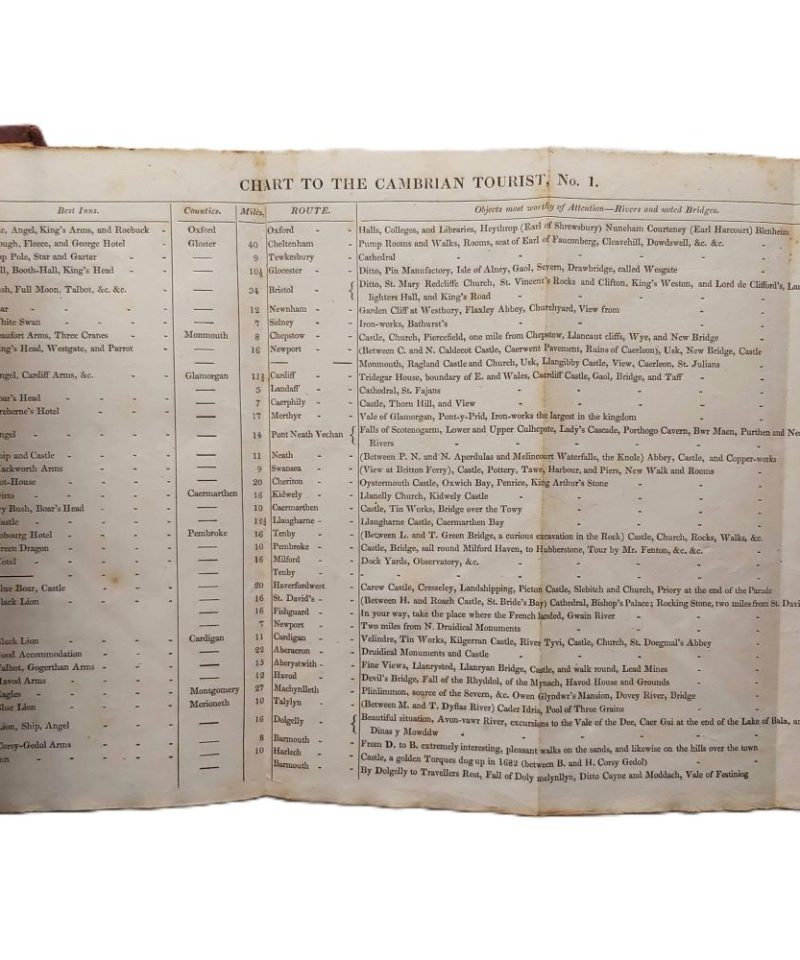 CHART TO THE CAMBRIAN TOURIST, No. 1.
Best Inns. Counties. Miles. ROUTE. Objects most worthy of Attention—Rivers and noted Bridges.
Angel, King's Arms, and Roebuck - Oxford Oxford - - Halls, Colleges, and Libraries, Heythrop (Earl of Shrewsbury) Nuneham Courteney (Earl Harcourt) Blenheim
Fleece, and George Hotel - Gloster 40 Cheltenham - Pump Rooms and Walks, Rooms, seat of Earl of Fauconberg, Cleavehill, Dowdswell, &c. &c. -
Pole, Star and Garter - - — 9 Tewkesbury - Cathedral - - - - - -
Booth-Hall, King's Head - - — 10½ Glocester - - Ditto, Pin Manufactory, Isle of Alney, Gaol, Severn, Drawbridge, called Wesgate -
Full Moon, Talbot, &c. &c. - — 34 Bristol - { Ditto, St. Mary Redcliffe Church, St. Vincent's Rocks and Clifton, King's Weston, and Lord de Clifford's,
lighters Hall, and King's Road - - - - -
- - - - — 12 Newnham - - Garden Cliff at Westbury, Flaxley Abbey, Churchyard, View from - -
White Swan - - - — 7 Sidney - - Iron-works, Bathurst's - - - - -
Beaufort Arms, Three Cranes - Monmouth 8 Chepstow - - Castle, Church, Piercefield, one mile from Chepstow, Llancaut cliffs, Wye, and New Bridge -
King's Head, Westgate, and Parrot — 16 Newport - - (Between C. and N. Caldecot Castle, Caerwent Pavement, Ruins of Caerleon), Usk, New Bridge, Castle
— — — — Monmouth, Ragland Castle and Church, Usk, Llangibby Castle, View, Caerleon, St. Julians -
Angel, Cardiff Arms, &c. - - Glamorgan 11½ Cardiff - - Tridegar House, boundary of E. and Wales, Caerdiff Castle, Gaol, Bridge, and Taff -
— 5 Landaff - - Cathedral, St. Fajans - - - - -
Boar's Head - - - — 7 Caerphily - - Castle, Thorn Hill, and View - - - -
Hotel - - - — 17 Merthyr - - Vale of Glamorgan, Pont-y-Prid, Iron-works the largest in the kingdom -
Angel - - - - — 14 Pont Neath Vechan { Falls of Scotenogarm, Lower and Upper Culhepste, Lady's Cascade, Porthogo Cavern, Bwr Maen, Purthen and
Rivers - - - - - -
Ship and Castle - - - — 11 Neath - - (Between P. N. and N. Aperdulas and Melincourt Waterfalls, the Knole) Abbey, Castle, and Copper-works
Mackworth Arms - - - — 9 Swansea - - (View at Britton Ferry), Castle, Pottery, Tawe, Harbour, and Piers, New Walk and Rooms -
- - - — 20 Cheriton - - Oystermouth Castle, Oxwich Bay, Penrice, King Arthur's Stone - -
Ditto - - - - Caermarthen 16 Kidwely - - Llanelly Church, Kidwely Castle - - - -
Bush, Boar's Head - - — 10 Caermarthen - Castle, Tin Works, Bridge over the Towy - - -
Castle - - - - — 12½ Llaugharne - - Llaugharne Castle, Caermarthen Bay - - -
Hotel - - - Pembroke 16 Tenby - - (Between L. and T. Green Bridge, a curious excavation in the Rock) Castle, Church, Rocks, Walks, &c.
Green Dragon - - - — 10 Pembroke - - Castle, Bridge, sail round Milford Haven, to Hubberstone, Tour by Mr. Fenton, &c. &c. -
Hotel - - - - — 16 Milford - - Dock Yards, Observatory, &c. - - - -
— — Tenby - - - - - - - -
Blue Boar, Castle - - - — 20 Haverfordwest - Carew Castle, Cresseley, Landshipping, Picton Castle, Slebitch and Church, Priory at the end of the Parade
Black Lion - - - — 16 St. David's - - (Between H. and Roach Castle, St. Bride's Bay) Cathedral, Bishop's Palace; Rocking Stone, two miles from St.
— 16 Fishguard - - In your way, take the place where the French landed, Gwain River - -
— 7 Newport - - Two miles from N. Druidical Monuments - - -
Black Lion - - - Cardigan 11 Cardigan - - Velindre, Tin Works, Kilgerran Castle, River Tyvi, Castle, Church, St. Doegmal's Abbey
Good Accommodation - - — 22 Aberaeron - - Druidical Monuments and Castle - - -
Talbot, Gogerthan Arms - - — 15 Aberystwith - - Fine Views, Llanrysted, Llanryan Bridge, Castle, and walk round, Lead Mines
Havod Arms - - - — 12 Havod - - Devil's Bridge, Fall of the Rhyddol, of the Mynach, Havod House and Grounds
Eagles - - - - Montgomery 27 Machynlleth - Plinlimmon, source of the Severn, &c. Owen Glyndwr's Mansion, Dovey River, Bridge
Blue Lion - - - Merioneth 10 Talylyn - - (Between M. and T. Dyflas River) Cader Idris, Pool of Three Grains
Lion, Ship, Angel - - - — 16 Dolgelly - { Beautiful situation, Avon-vawr River, excursions to the Vale of the Dee, Caer Gai at the end of the Lake of Bala,
Dinas y Mowddw - - - - -
Corsy-Gedol Arms - - - — 8 Barmouth - - From D. to B. extremely interesting, pleasant walks on the sands, and likewise on the hills over the town
- - - - — 10 Harlech - - Castle, a golden Torques dug up in 1682 (between B. and H. Corsy Gedol)
— Barmouth - - By Dolgelly to Travellers Rest, Fall of Doly melynllyn, Ditto Cayne and Moddach, Vale of Festiniog